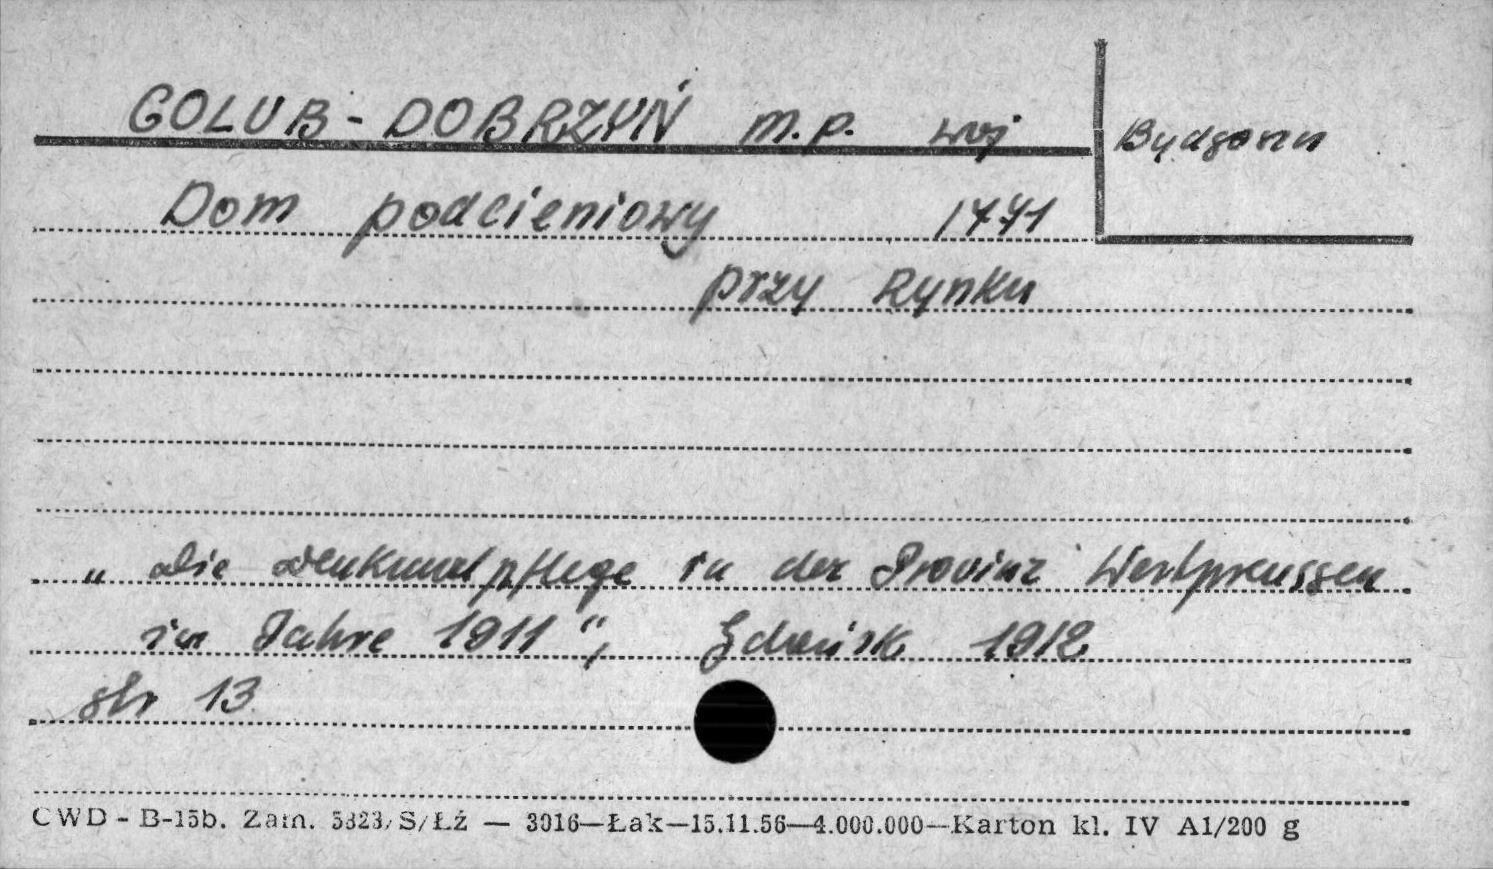 GOLUB - DOBRZYŃ m.p. woj Bydgoszcz
Dom podcieniowy 1771
przy Rynku
„Die Denkmalpflege in der Provinz Westpreussen
im Jahre 1911", Gdańsk 1912
str 13
CWD - B-15b. Zam. 5323/S/Łź — 3016—Łak—15.11.56—4.000.000—Karton kl. IV A1/200 g